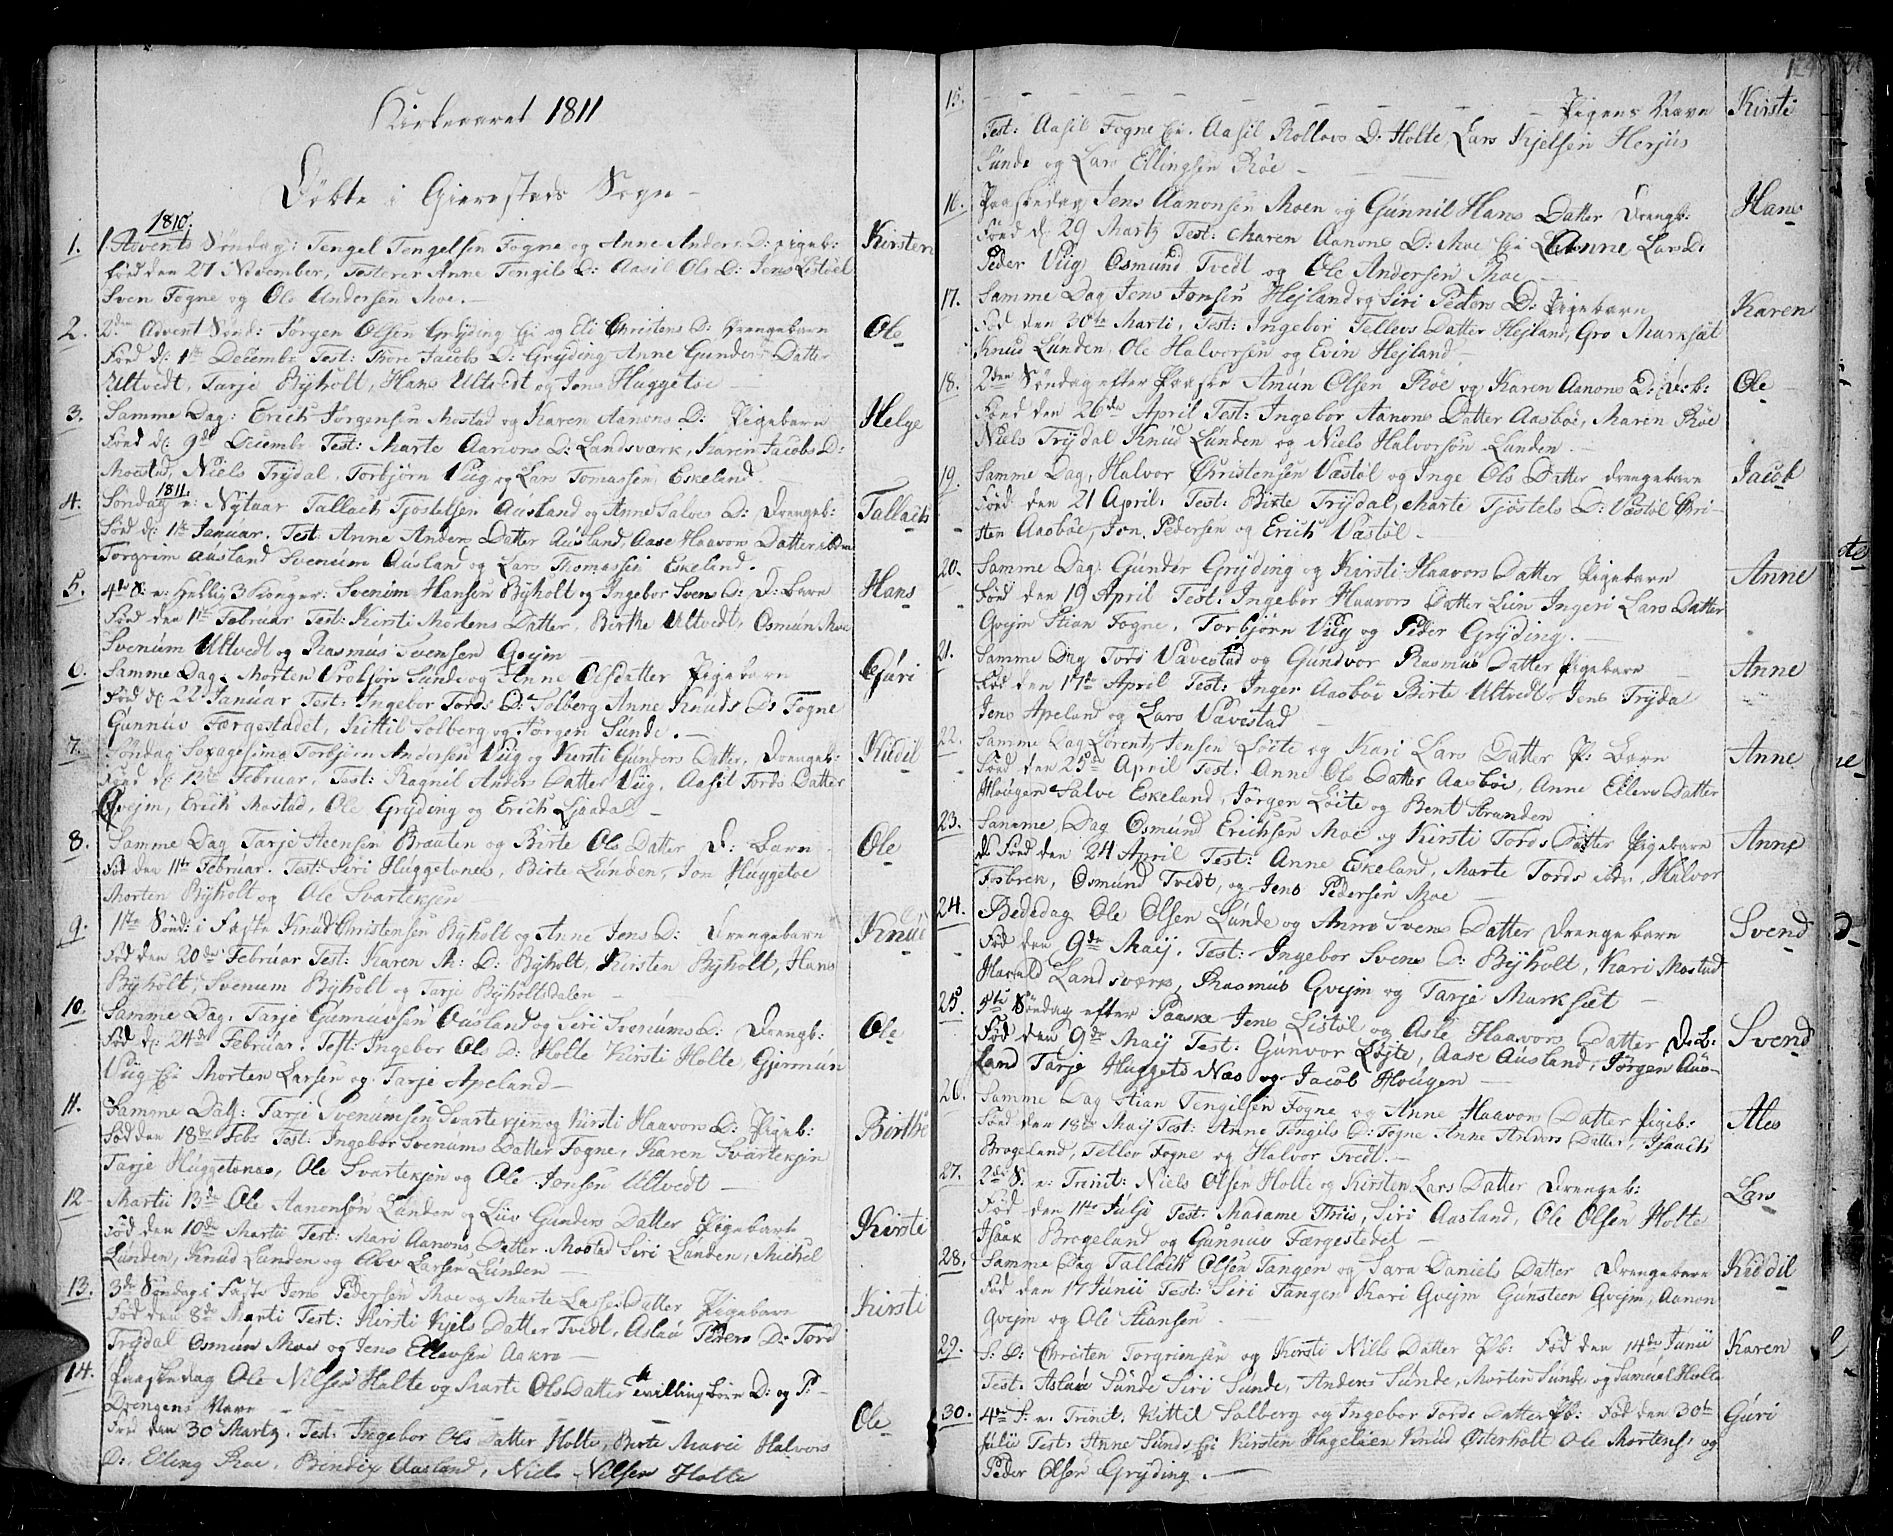 Kirkeaaret 1811
Døbte i Gierestads Sogn
1810.
1. 1. Advents Søndag: Tengel Tengelsen Fogne og Anne Anders D: pigeb: Kirsten
født den 27 November, Testerer Anne Tengils D: Aasil Ols D: Jens Listøel
Sven Fogne og Ole Andersen Moe.
2. 2den Advent Sønd: Jørgen Olsen Grÿding og Eli Christens D: Drengebarn Ole
Født d: 1te Decembr Test: Tore Jacobs D: Grÿding Anne Gunders Datter
Ultvedt, Tarje Bÿholt, Hans Ultvedt og Jens Huggetoe
3. Samme Dag: Erich Jørgensen Mostad og Karen Aanons D: Pigebarn Helge
Født d: 9de Decembr Test: Marte Aanons D: Landsværk, Karen Jacobs D:
Mostad, Niels Trÿdal, Torbjørn Viig og Lars Tomassen Eskeland.
1811.
4. Søndag e: Nÿtaar Tallach Tjøstelsen Ausland og Anne Salves D: Drengeb: Tallach
Född d: 1te Januar. Test: Anne Anders Datter Ausland, Aase Haavors Datter ibdm
Torgrim Ausland Svenum Ausland og Lars Thomassen Eskeland.
5. 4de S: e: Hellig 3 Konger: Svenum Hansen Bÿholt og Ingebor Svens D: D: Barn Hans
Född den 1te Februar Test: Kirsti Mortens Datter, Birthe Ultvedt, Osmun Moe
Svenum Ultvedt og Rasmus Svensen Qvejm
6. Samme Dag Morten Broljøn Sunde og Anne Olsdatter Pigebarn Guri
Född d: 22 Januar Test: Ingebor Tords D: Solberg Anne Knuds D: Fogne
Gunnuv Færgestadet, Kittil Solberg og Jørgen Sunde.
7. Søndag Sexagesima Torbjørn Andersen Viig og Kirsti Gunders Datter, Drengeb:
Född d: 12te Februar, Test: Ragnil Anders Datter Viig, Aasil Tords Datter
Qvejm, Erich Mostad, Ole Grÿding og Erich Ljaadal
8. Samme Dag Tarje Steensen Brauten og Birte Ols Datter D: Barn Ole
Född den 11te Februar. Test: Siri Huggetones, Birte Lunden, Jon Huggetoe
Morten Bÿholt og Ole Svarteksen
9. 1ste Sønd: i Faste Knud Christensen Bÿholt og Anne Jens D: Drengebarn Knud
Född den 20de Februar Test: Karen M: D: Bÿholt, Kirsten Bÿholt, Hans
Bÿholt, Svenum Bÿholt og Tarje Bÿholtsdalen
10. Samme Dag. Tarje Gunnuvsen Ausland og Siri Svenums D: Drengb: Ole
Född d: 24de Februar. Test: Ingebor Ols D: Holte Kirsti Holte, Gjermun
Viig Morten Larsen og Tarje Apeland
11. Samme Dag: Tarje Svenumsen Svartekjen og Kirsti Haavors D: Pigeb: Birthe
Född den 18de Febr Test: Ingebor Svenums Datter Fogne, Karen Svartekjen
Tarje Huggetones, Ole Svartekjen og Ole Jensen Ultvedt
12. Martii 13de Ole Aanonsøn Lunden og Liv Gunders Datter Pigebarn Kirsti
Född den 10de Martii Test: Mari Aanons Datter Mostad Siri Lunden, Michel
Lunden, Knud Lunden og Larsen Lunden
13. 3de Søndag i Faste Jens Pedersen Moe og Marte Lasses Datter Pigebarn Kirsti
Född den 8de Marti Test: Kirsti Kjels Datter Tvedt, Aslau Peders D: Tord
Trÿdal Osmun Moe og Jens Ellevsen Aakre
14. Paaskedag Ole Nilsen Holte og Marte Ols Datter tvillingbörn D: og P:
Drengens Navn Ole
Född den 30 Martz. Test: Ingebor Ols Datter Holte, Birte Marie Halvors
D: Elling Roe, Bendix Ausland, Niels Nilsen Holte
124
15. Pigens Navn Kirsti
Test: Aasil Fogne, Aasil Rollovs D: Holte, Lars Kjelsen Herjus
Sunde og Lars Ellingsen Røe
16. Paaskedag Jens Aanonsen Moen og Gunnil Hans Datter Drengb: Hans
Född d: 29 Martz Test: Maren Aanons D: Moe Anne Lars D:
Peder Viig Osmund Tvedt og Ole Andersen Moe
17. Samme Dag Jens Jonsen Hejland og Siri Peders D: Pigebarn Karen
Född den 30te Marti, Test: Ingebor Tellevs Datter Hejland, Gro Marksæt
Knud Lunden, Ole Halvorsen og Evin Hejland
18. 2den Søndag efter Paaske Amun Olsen Røe og Karen Aanons D: D:b: Ole
Född den 26de April Test: Ingebor Aanons Datter Aasbøe, Maren Røe
Niels Trÿdal Knud Lunden og Niels Halvorsøn Lunden
19. Samme Dag, Halvor Christensen Væstøl og Inge Ols Datter Drengebarn Jacob
Född den 21 April. Test: Birte Trÿdal, Marte Tjöstels D: Væstøl Chri-
sten Aasbøe, Jon Pedersen og Erich Væstøl
20. Samme Dag: Gunder Grÿding og Kirsti Haavors Datter Pigebarn Anne
Född den 19 April Test: Ingebor Haavors Datter Lien Ingeri Lars Datter
Qvejm Stian Fogne, Torbjørn Viig og Peder Grÿding.
21. Samme Dag Tord Vævestad og Gundvor Rasmus Datter Pigebarn Anne
Född den 17de April Test: Inger Aasbøe Birte Ultvedt Jens Trÿdal
Jens Apeland og Lars Vævestad
22. Samme Dag Lorentz Jensen Løite og Kari Lars Datter P: Barn Anne
Född den 25de April Test: Anne Ols Datter Aasbøe, Anne Ellevs Datter
Hougen Salve Eskeland, Jørgen Løite og Bent Stranden
23. Samme Dag Osmund Erichsen Moe og Kirsti Tords Datter Pigebarn Anne
Född den 24 April Test: Anne Eskeland, Marte Tords ibdm, Halvor
Fosbrek, Osmund Tvedt, og Jens Pedersen Moe
24. Bededag Ole Olsen Lunde og Anne Svens Datter Drengebarn Svend
Född den 9de Maij. Test: Ingebor Svens D: Bÿholt, Kari Mostad
Harald Landsværk, Rasmus Qvejm og Tarje Marksæt
25. 5te Søndag efter Paaske Jens Listøl og Asle Haavors Datter D:B: Svend
Född den 9de Maij Test: Gunvor Løjte, Aase Ausland, Jørgen Aus-
land Tarje Huggets Næs og Jacob Hougen
26. Samme Dag Stian Tengilsen Fogne og Anne Haavors Datter Pigeb: Ales
Född den 18de Maij Test: Anne Tengils D: Fogne Anne Datter, Isaach
Brogeland, Tellev Fogne og Halvor Tvedt.
27. 2de S. e: Trinit: Niels Olsen Holte og Kirsten Lars Datter Drengeb: Lars
Född den 11te Julji Test: Madame Thiis, Siri Aasland, Ole Olsen Holte
Isaak Brogeland og Gunnuv Færgestedet
28. Samme Dag Tallach Olsen Tangen og Sara Daniels Datter Drengebarn Kiddil
Född den 17 Junii Test: Siri Tangen Kari Qvejm Gunsteen Qvejm, Aanon
Qvejm og Ole Stiansen
29. S: D: Christen Torgrimsen og Kirsti Nills Datter Pb: Född den 14de Junii Karen
Test: Aslau Sunde Siri Sunde, Anders Sunde, Morten Sunde og Samuel Holte
30. 4de S: e: Trinit. Kittil Solberg og Ingebor Tords Datter Pb: Född den 30te Guri
Julii Test: Anne Sunds Kirsten Hagelien Knud Østerholt Ole Mortens: og
Peder Olsen Grÿding.